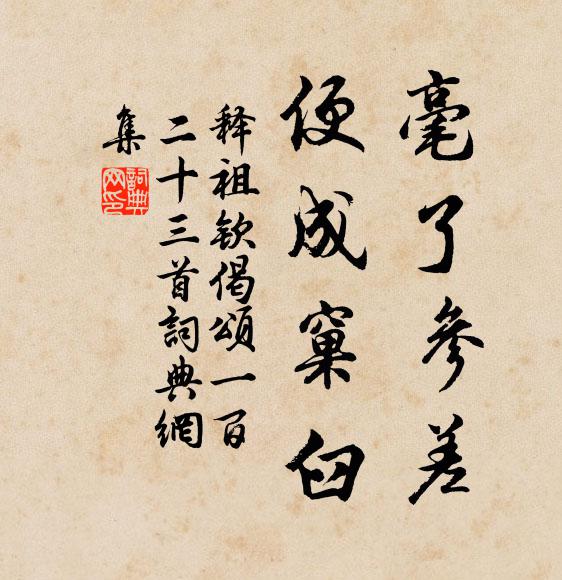 毫了參差
便成窠臼
釋祖欽偈頌一百
二十三首詞典網
集
詞典
网印